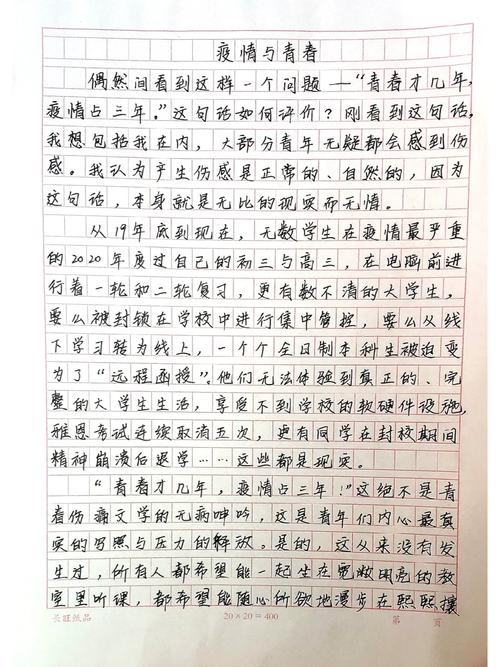 疫情与青春
偶然间看到这样一个问题—“青春才几年,
疫情占三年。”这句话如何评价？刚看到这句话,
我想包括我在内，大部分青年无疑都会感到伤
感。我认为产生伤感是正常的、自然的，因为
这句话，本身就是无比的现实而无情。
从19年底到现在，无数学生在疫情最严重
的2020年度过自己的初三与高三，在电脑前进
行着一轮和二轮复习，更有数不清的大学生，
要么被封锁在学校中进行集中管控，要么从线
下学习转为线上，一个个全日制本科生被迫变
为了“远程函授”。他们无法体验到真正的、完
整的大学生生活，享受不到学校的软硬件设施,
雅思考试连续取消五次，更有同学在封校期间
精神崩溃后退学……这些都是现实。
“青春才几年，疫情占三年！”这绝不是青
春伤痛文学的无病呻吟，这是青年们内心最真
实的写照与压力的释放。是的，这从来没有发
生过，所有人都希望能一起坐在宽敞明亮的教
室里听课，都希望能随心所欲地漫步在熙熙攘
长旺纸品 20×20=400 第 页